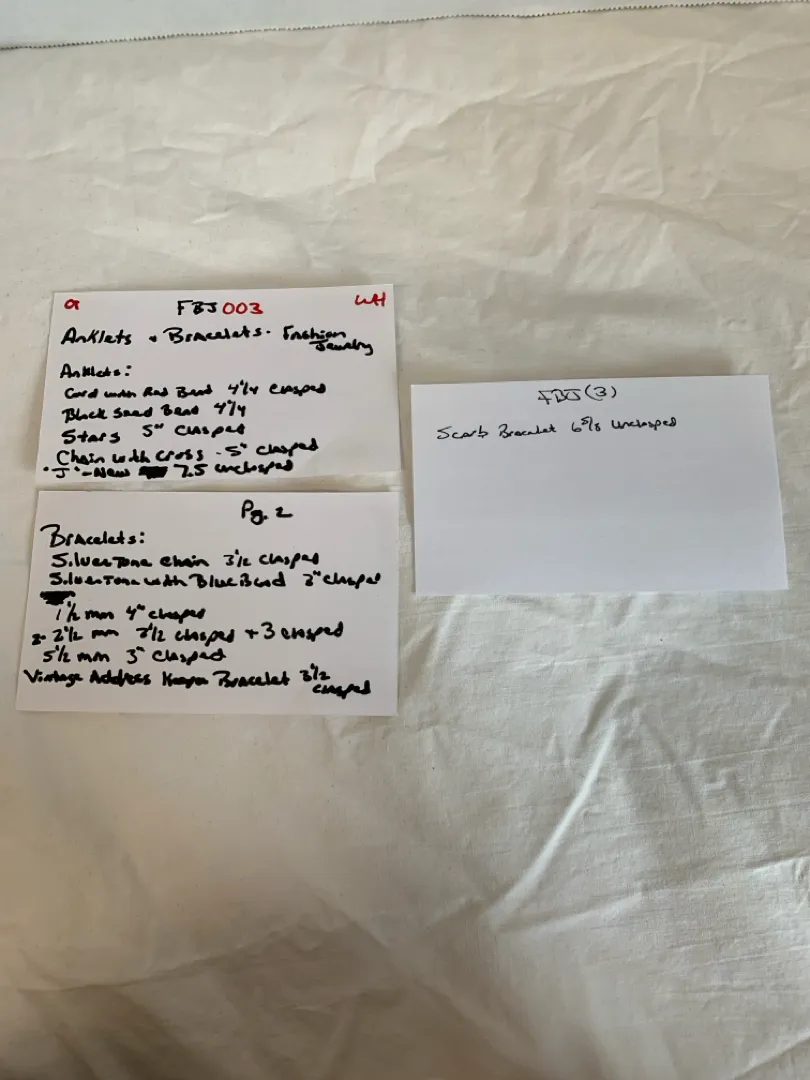 FBJ003 WH
Anklets + Bracelets. Fashion
Jewelry
Anklets:
Cord with Red Bead 4 1/4 clasped
Black Seed Bead 4 1/4
Stars 5" clasped
Chain with cross - 5" clasped
"J" - New 7.5 unclasped
Pg. 2
Bracelets:
Silver Tone Chain 3 1/2 clasped
Silver Tone with Blue Bead 3" clasped
1 1/2 mm 4" clasped
2- 2 1/2 mm 3 1/2 clasped + 3 clasped
5 1/2 mm 3" clasped
Vintage Address Keeper Bracelet 3 1/2
clasped
FBJ (3)
Scarb Bracelet 6 5/8 unclasped